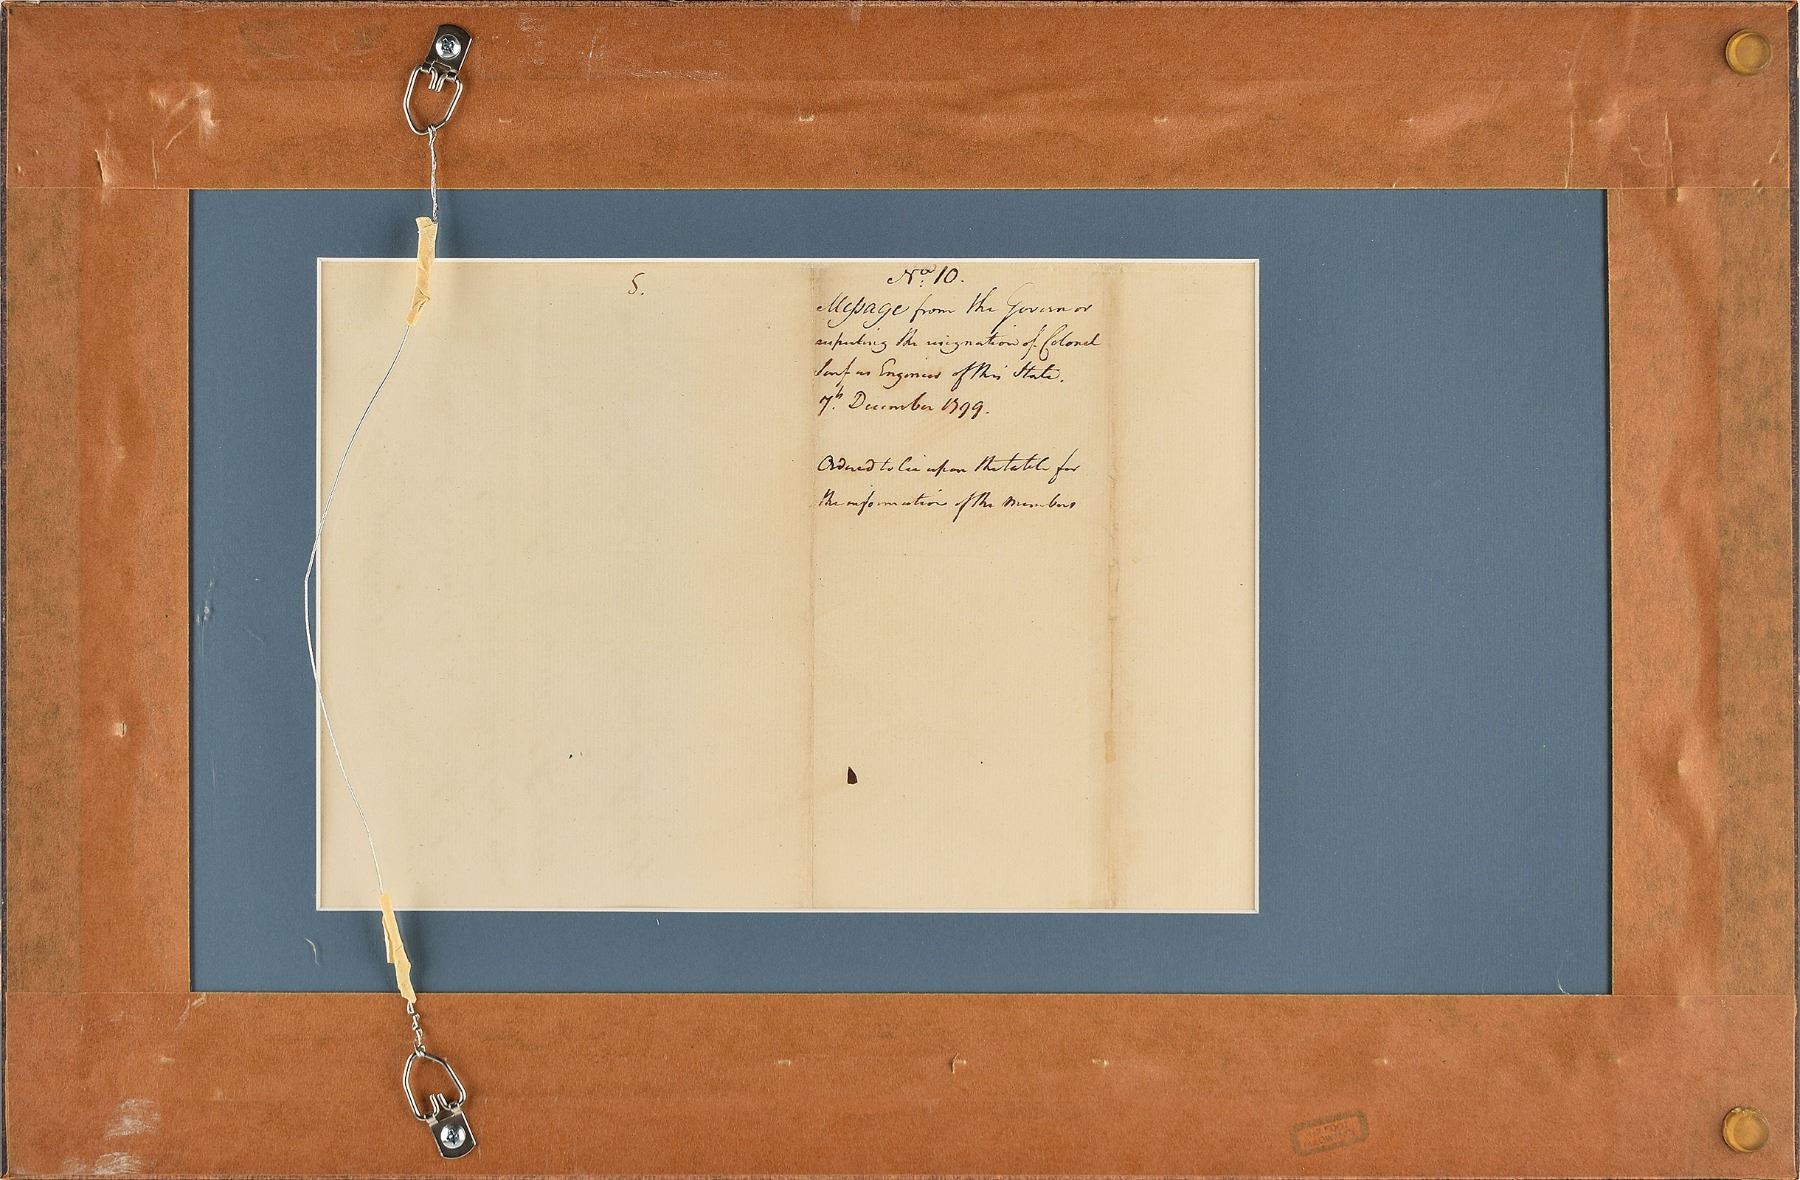 S.
No. 10.
Message from the Governor
respecting the resignation of Colonel
Senf as Engineer of this State.
7th December 1799.
Ordered to lie upon the table for
the information of the members